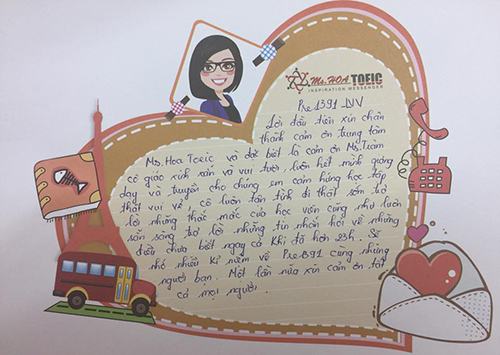 Ms.HOA TOEIC
INSPIRATION MESSENGER
Pre1391 DV
Lời đầu tiên xin chân
thành cảm ơn trung tâm
Ms. Hoa Toeic và đặc biệt là cảm ơn Ms. Trâm
cô giáo xinh xắn và vui tươi, luôn hết mình giảng
dạy và truyền cho chúng em cảm hứng học tập
thật vui vẻ. Cô luôn tận tình đi thật sớm trả
lời những thắc mắc của học viên cũng như luôn
sẵn sàng trả lời những tin nhắn hỏi về những
điều chưa biết ngay cả khi đã hơn 23h. Sẽ
nhớ nhiều kỉ niệm về Pre1391 cùng những
người bạn. Một lần nữa xin cảm ơn tất
cả mọi người.